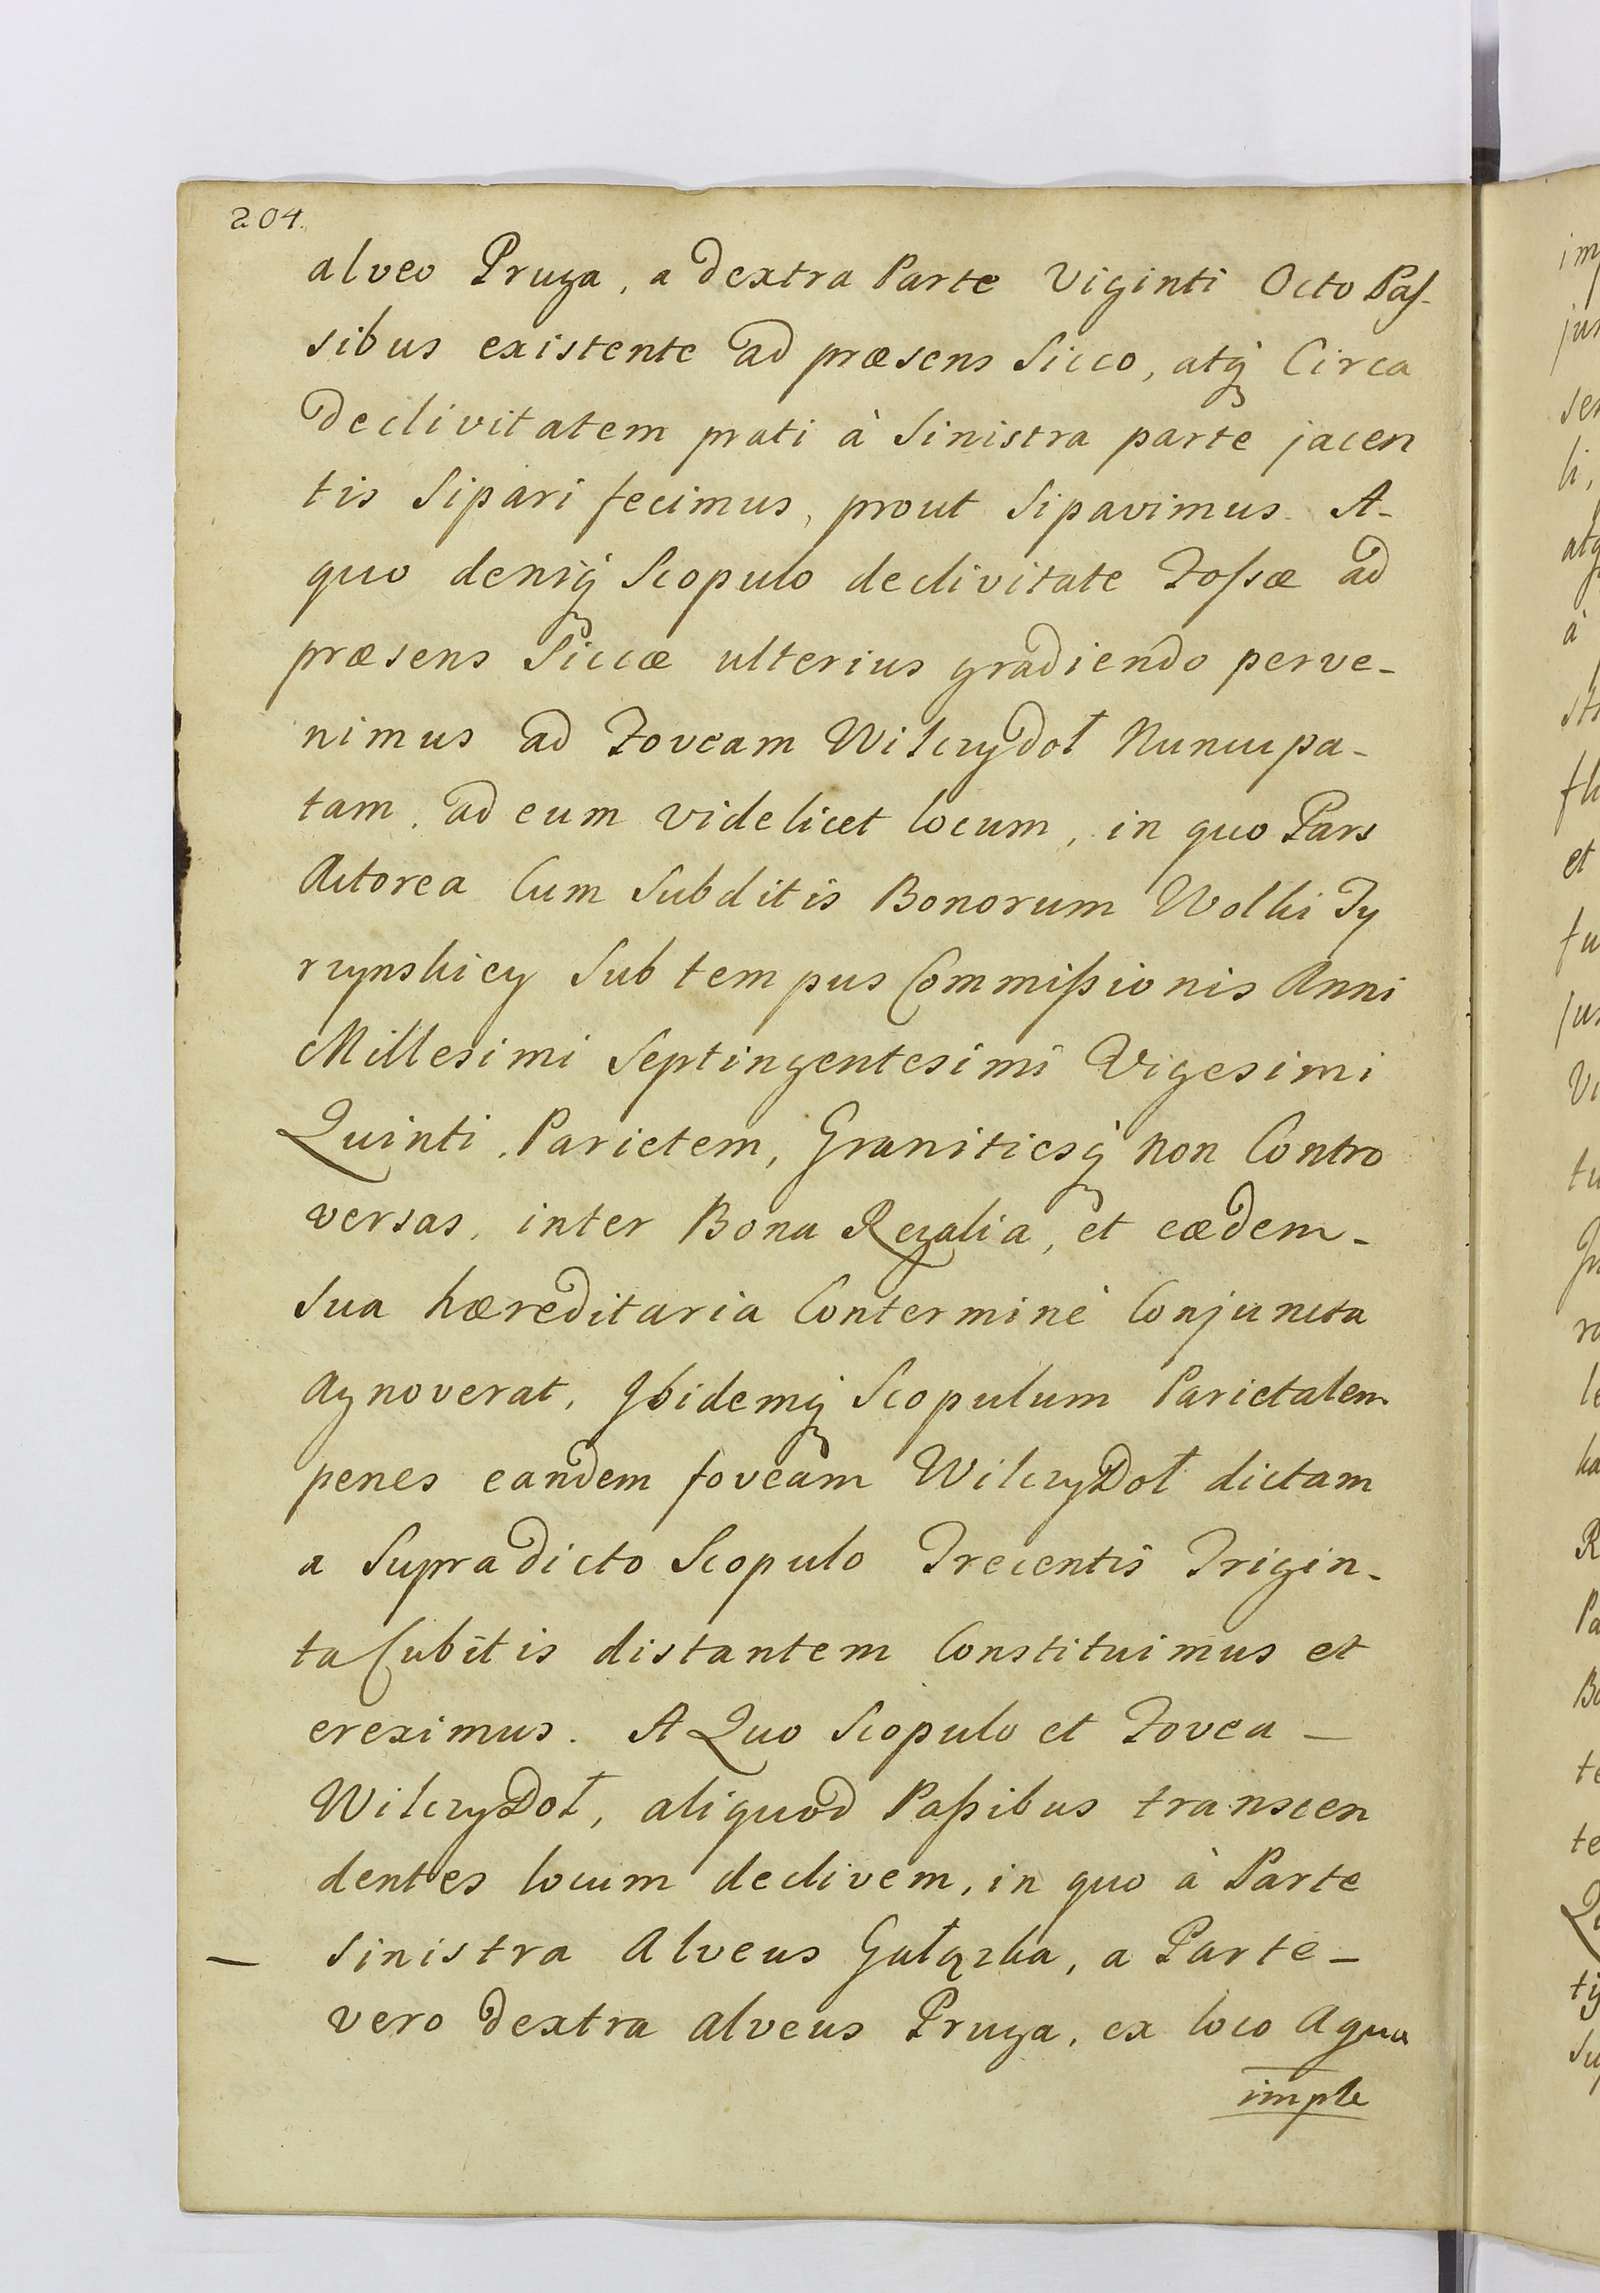 204.
alveo Pruga, a dextra Parte Viginti Octo Paſ-
sibus existente ad præsens Sicco, atq́; Circa
declivitatem prati à Sinistra parte jacen
tis Sipari fecimus, prout Sipavimus. A-
quo deniq́; Scopulo declivitate Foſsæ ad
præsens Siccæ ulterius gradiendo perve-
nimus ad Foveam Wilczydoł Nuncupa-
tam, ad eum videlicet locum, in quo Pars
Actorea Cum Subditis Bonorum Wolki Ty
rzynskiey Sub tempus Commiſsionis Anni
Millesimi Septingentesimi Vigesimi
Quinti, Parietem, Granitiesq́; non Contro
versas, inter Bona Regalia, et eædem-
Sua hæreditaria Conterminè Conjuncta
Agnoverat, Ibidemq́; Scopulum Parietalem
penes eandem foveam WilczyDoł dictam
a Supradicto Scopulo Trecentis Trigin-
ta Cubitis distantem Constituimus et
ereximus. A Quo Scopulo et Fovea –
WilczyDoł, aliquod Paſsibus transcen
dentes locum declivem, in quo à Parte
– Sinistra Alveus Gałązka, a Parte –
vero dextra Alveus Pruga, ex loco Aqua
imple